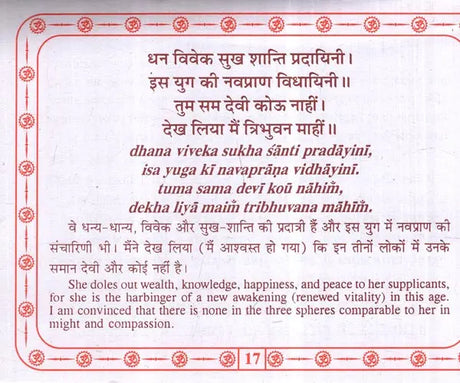 धन विवेक सुख शान्ति प्रदायिनी।
इस युग की नवप्राण विधायिनी॥
तुम सम देवी कोऊ नाहीं।
देख लिया मैं त्रिभुवन माहीं॥
dhana viveka sukha śānti pradāyinī,
isa yuga kī navaprāṇa vidhāyinī.
tuma sama devī koū nāhīm̐,
dekha liyā maim̐ tribhuvana māhīm̐.
वे धन्य-धान्य, विवेक और सुख-शान्ति की प्रदात्री हैं और इस युग में नवप्राण की
संचारिणी भी। मैंने देख लिया (मैं आश्वस्त हो गया) कि इन तीनों लोकों में उनके
समान देवी और कोई नहीं है।
She doles out wealth, knowledge, happiness, and peace to her supplicants,
for she is the harbinger of a new awakening (renewed vitality) in this age.
I am convinced that there is none in the three spheres comparable to her in
might and compassion.
17